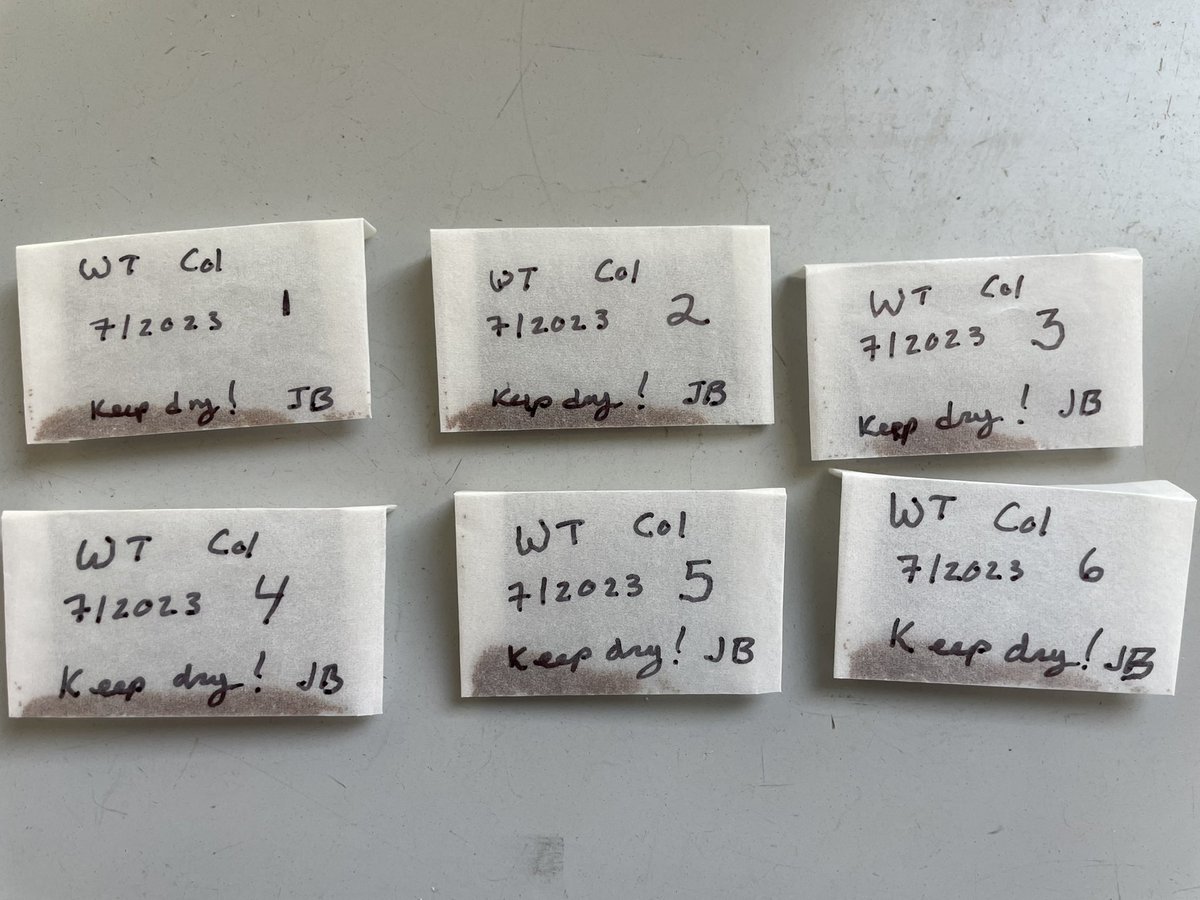 WT Col
7/2023 1
Keep dry! JB
WT Col
7/2023 2
Keep dry! JB
WT Col
7/2023 3
Keep dry! JB
WT Col
7/2023 4
Keep dry! JB
WT Col
7/2023 5
Keep dry! JB
WT Col
7/2023 6
Keep dry! JB